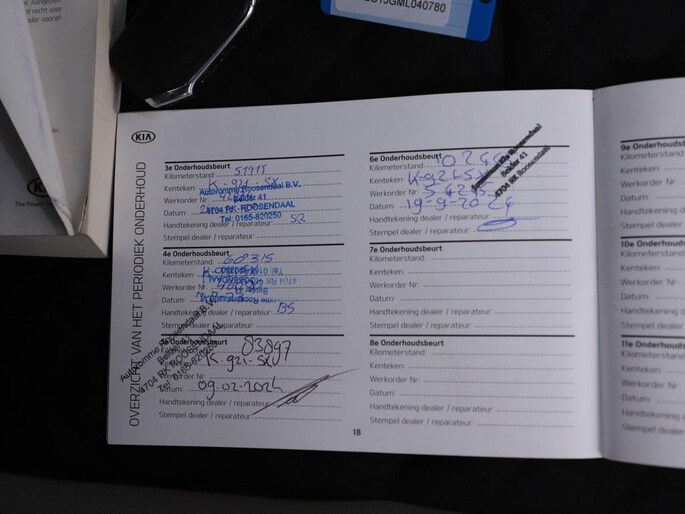 GML040780
KIA
The Power
OVERZICHT VAN HET PERIODIEK ONDERHOUD
3e Onderhoudsbeurt
Kilometerstand 51975
Kenteken K-921-SX
Werkorder Nr.
Datum
Handtekening dealer / reparateur SR
Stempel dealer / reparateur
Autoromme Roosendaal B.V.
Belder 41
4704 RK ROOSENDAAL
Tel: 0165-820250
4e Onderhoudsbeurt
Kilometerstand 68315
Kenteken
Werkorder Nr.
Datum
Handtekening dealer / reparateur BS
Stempel dealer / reparateur
5e Onderhoudsbeurt
Kilometerstand 83897
Kenteken K-921-SX
Werkorder Nr.
Datum 09-02-2024
Handtekening dealer / reparateur
Stempel dealer / reparateur
Autoromme Roosendaal B.V.
Belder 41
4704 RK ROOSENDAAL
Tel: 0165-820250
6e Onderhoudsbeurt
Kilometerstand
Kenteken K-921-SX
Werkorder Nr.
Datum 19-9-2024
Handtekening dealer / reparateur
Stempel dealer / reparateur
Roosendaal
Belder 41
4704 RK Roosendaal
7e Onderhoudsbeurt
Kilometerstand
Kenteken
Werkorder Nr.
Datum
Handtekening dealer / reparateur
Stempel dealer / reparateur
8e Onderhoudsbeurt
Kilometerstand
Kenteken
Werkorder Nr.
Datum
Handtekening dealer / reparateur
Stempel dealer / reparateur
18
9e Onderhoudsbeurt
Kilometerstand
Kenteken
Werkorder Nr.
Datum
Handtekening
Stempel dealer
10e Onderhoud
Kilometerstand
Kenteken
Werkorder Nr.
Datum
Handtekening
Stempel dealer
11e Onderhoud
Kilometerstand
Kenteken
Werkorder Nr.
Datum
Handtekening
Stempel dealer